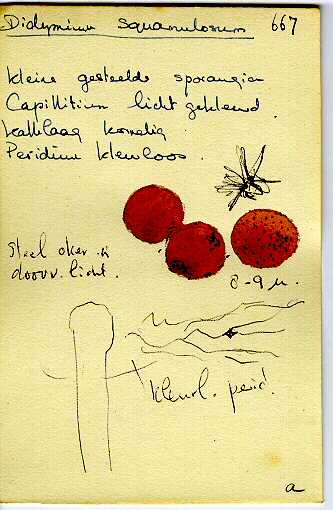 Didymium squamulosum 667
kleine gesteelde sporangien
Capillitium licht gekleurd
kalklaag korrelig
Peridium kleurloos.
Steel oker in
doorv. licht.
8-9 µ.
kleurl. perid.
a